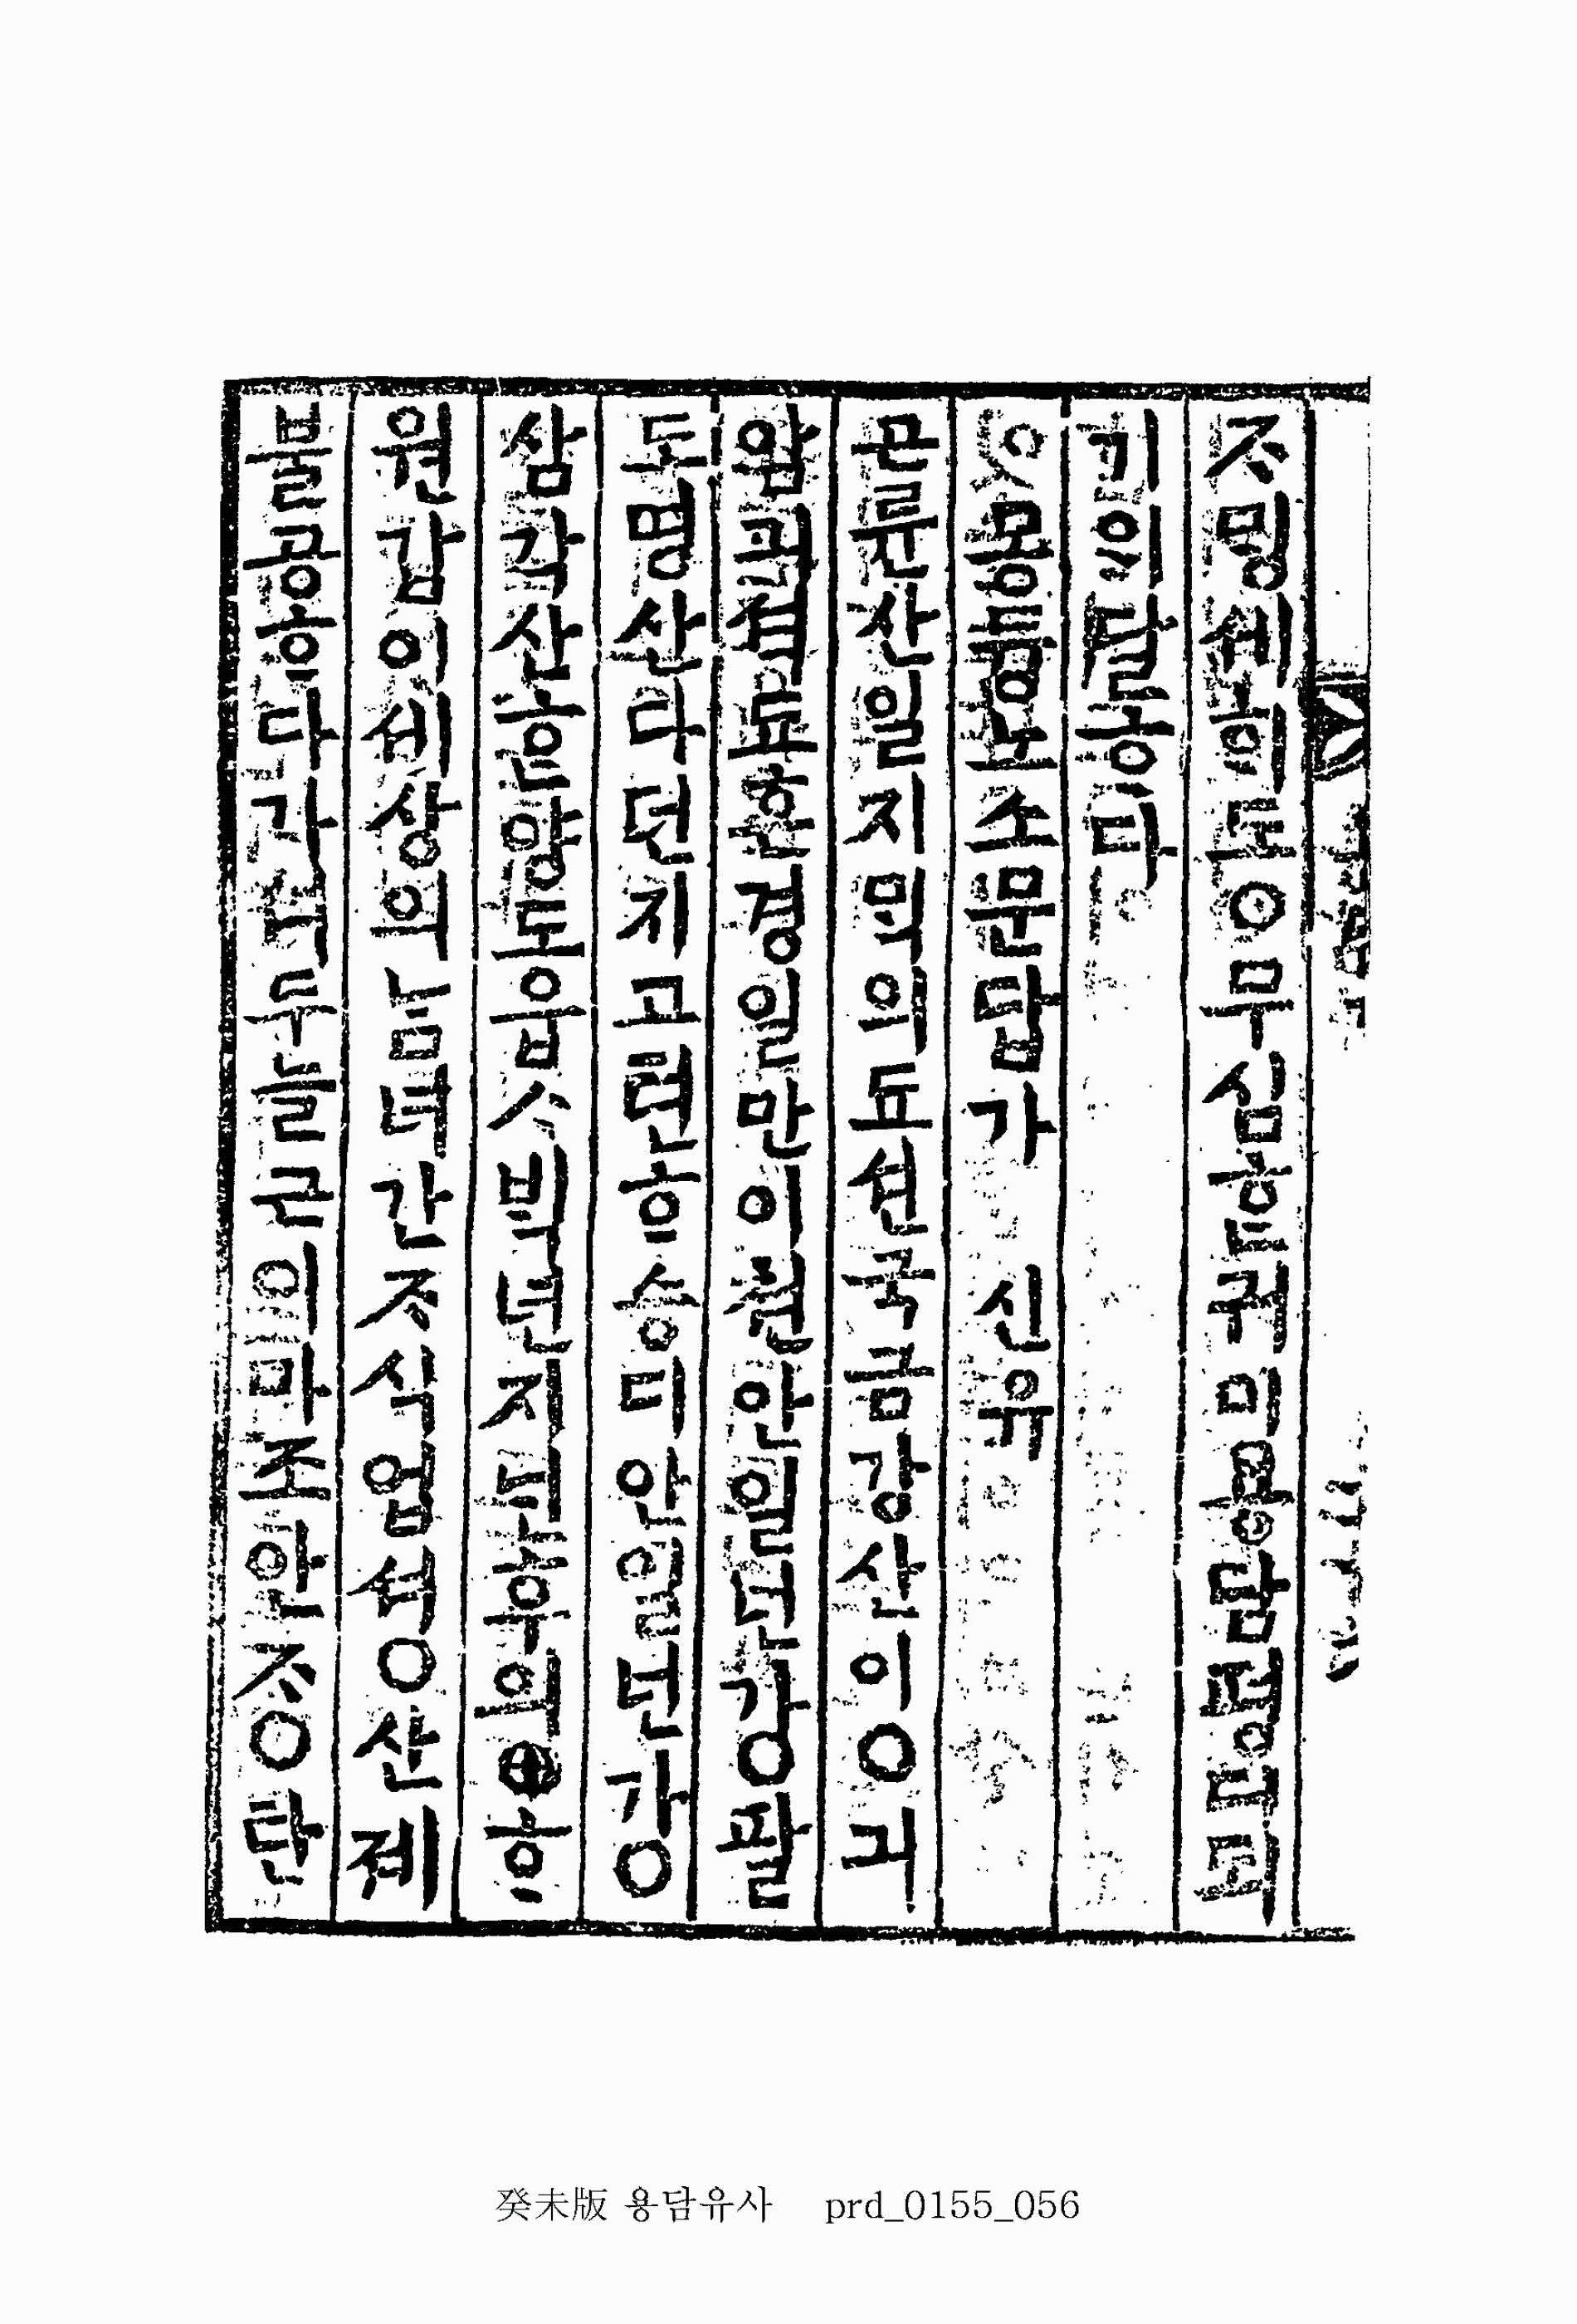 ᄌᆞᄆᆡᆼ셰ᄒᆡ도○무심ᄒᆞᆫ귀미용담평디되
기ᄋᆡ달ᄒᆞ다
○몽듕노소문답가 신유
곤륜산일지ᄆᆡᆨ의됴션국금강산이○긔
암괴셕됴흔경일만이쳔안일넌가○팔
도명산다던지고텬ᄒᆞ승디안일넌가○
삼각산ᄒᆞᆫ양도읍ᄉᆞᄇᆡᆨ년지닌후의○ᄒᆞ
원갑이셰상의남녀간ᄌᆞ식업셔○산졔
불공ᄒᆞ다가셔두늘근의마조안ᄌᆞ○탄
癸未版 용담유사 prd_0155_056